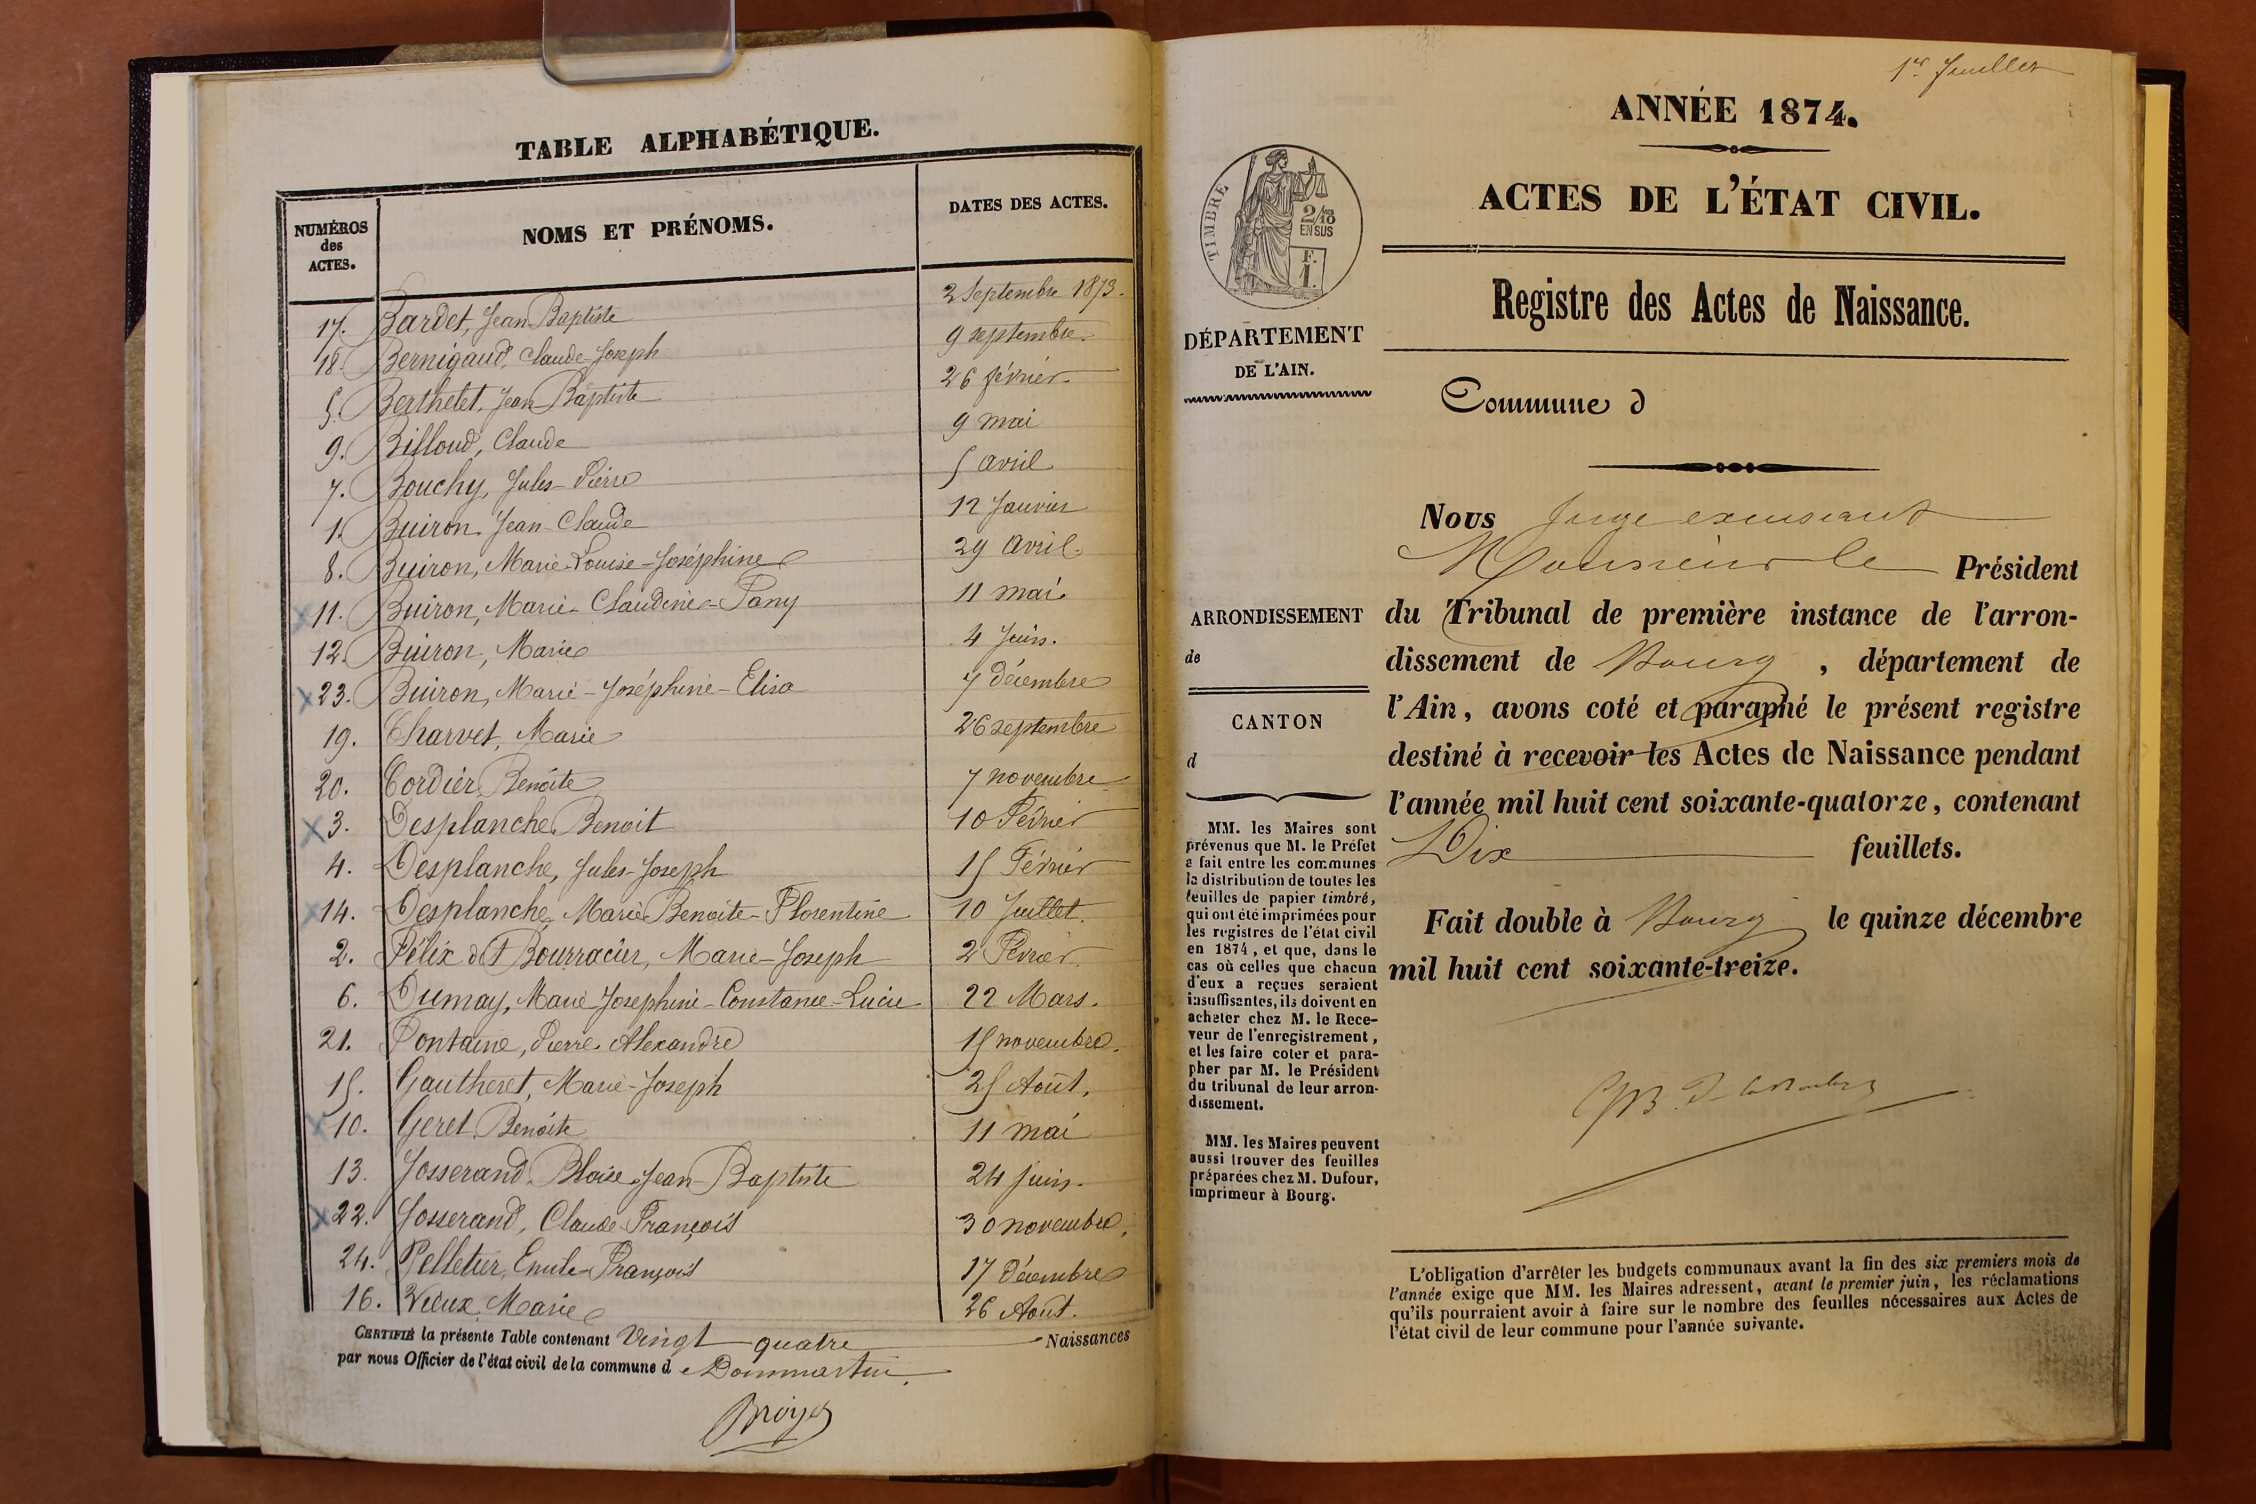 TABLE ALPHABÉTIQUE.
NUMÉROS des ACTES. NOMS ET PRÉNOMS. DATES DES ACTES.
17. Bardet, Jean Baptiste 2 Septembre 1873.
18. Bernigaud, Claude Joseph 9 septembre
5. Berthelet, Jean Baptiste 26 février
9. Billoud, Claude 9 mai
7. Bouchy, Jules Pierre 5 avril
1. Buiron, Jean Claude 12 Janvier
8. Buiron, Marie-Louise-Joséphine 29 avril
11. Buiron, Marie-Claudine-Fany 11 mai
12. Buiron, Marie 4 Juin.
23. Buiron, Marie-Joséphine-Elisa 7 décembre
19. Charvet, Marie 26 septembre
20. Cordier, Benoîte 7 novembre
3. Desplanche, Benoit 10 Février
4. Desplanche, Jules-Joseph 15 Février
14. Desplanche, Marie Benoite-Florentine 10 Juillet.
2. Félix, Marie-Joseph 2 Février
6. Dumay, Marie Joséphine-Constance-Lucie 22 Mars.
21. Fontaine, Pierre Alexandre 15 novembre.
15. Gautheret, Marie-Joseph 25 Août.
10. Geret, Benoite 11 mai
13. Josserand, Blaise Jean Baptiste 24 juin.
22. Josserand, Claude François 30 novembre.
24. Pelletier, Emile-François 17 Décembre
16. Vieux, Marie 26 Août.
CERTIFIÉ la présente Table contenant Vingt quatre Naissances
par nous Officier de l'état civil de la commune d e Dommartin.
Broyer
1er feuillet
ANNÉE 1874.
ACTES DE L'ÉTAT CIVIL.
Registre des Actes de Naissance.
TIMBRE
2/10
EN SUS
F.
1.
DÉPARTEMENT
DE L'AIN.
Commune d
ARRONDISSEMENT
de
CANTON
d
MM. les Maires sont
prévenus que M. le Préfet
a fait entre les communes
la distribution de toutes les
feuilles de papier timbré,
qui ont été imprimées pour
les registres de l'état civil
en 1874, et que, dans le
cas où celles que chacun
d'eux a reçues seraient
insuffisantes, ils doivent en
acheter chez M. le Rece-
veur de l'enregistrement,
et les faire coter et para-
pher par M. le Président
du tribunal de leur arron-
dissement.
MM. les Maires peuvent
aussi trouver des feuilles
préparées chez M. Dufour,
imprimeur à Bourg.
Nous Juge
Monsieur le Président
du Tribunal de première instance de l'arron-
dissement de Bourg, département de
l'Ain, avons coté et paraphé le présent registre
destiné à recevoir les Actes de Naissance pendant
l'année mil huit cent soixante-quatorze, contenant
Dix feuillets.
Fait double à Bourg le quinze décembre
mil huit cent soixante-treize.
L'obligation d'arrêter les budgets communaux avant la fin des six premiers mois de
l'année exige que MM. les Maires adressent, avant le premier juin, les réclamations
qu'ils pourraient avoir à faire sur le nombre des feuilles nécessaires aux Actes de
l'état civil de leur commune pour l'année suivante.